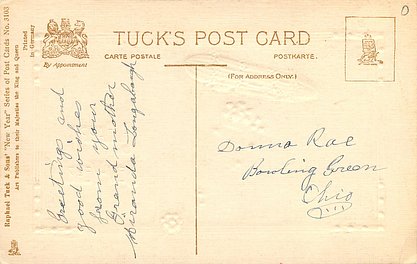 Raphael Tuck & Sons' "New Year" Series of Post Cards No. 3103
Art Publishers to their Majesties the King and Queen
Printed
in Germany
By Appointment
TUCK'S POST CARD
CARTE POSTALE
POSTKARTE.
(FOR ADDRESS ONLY.)
Greetings and
good wishes
from your
Grandmother
Miranda
Donna Rae
Bowling Green
Ohio